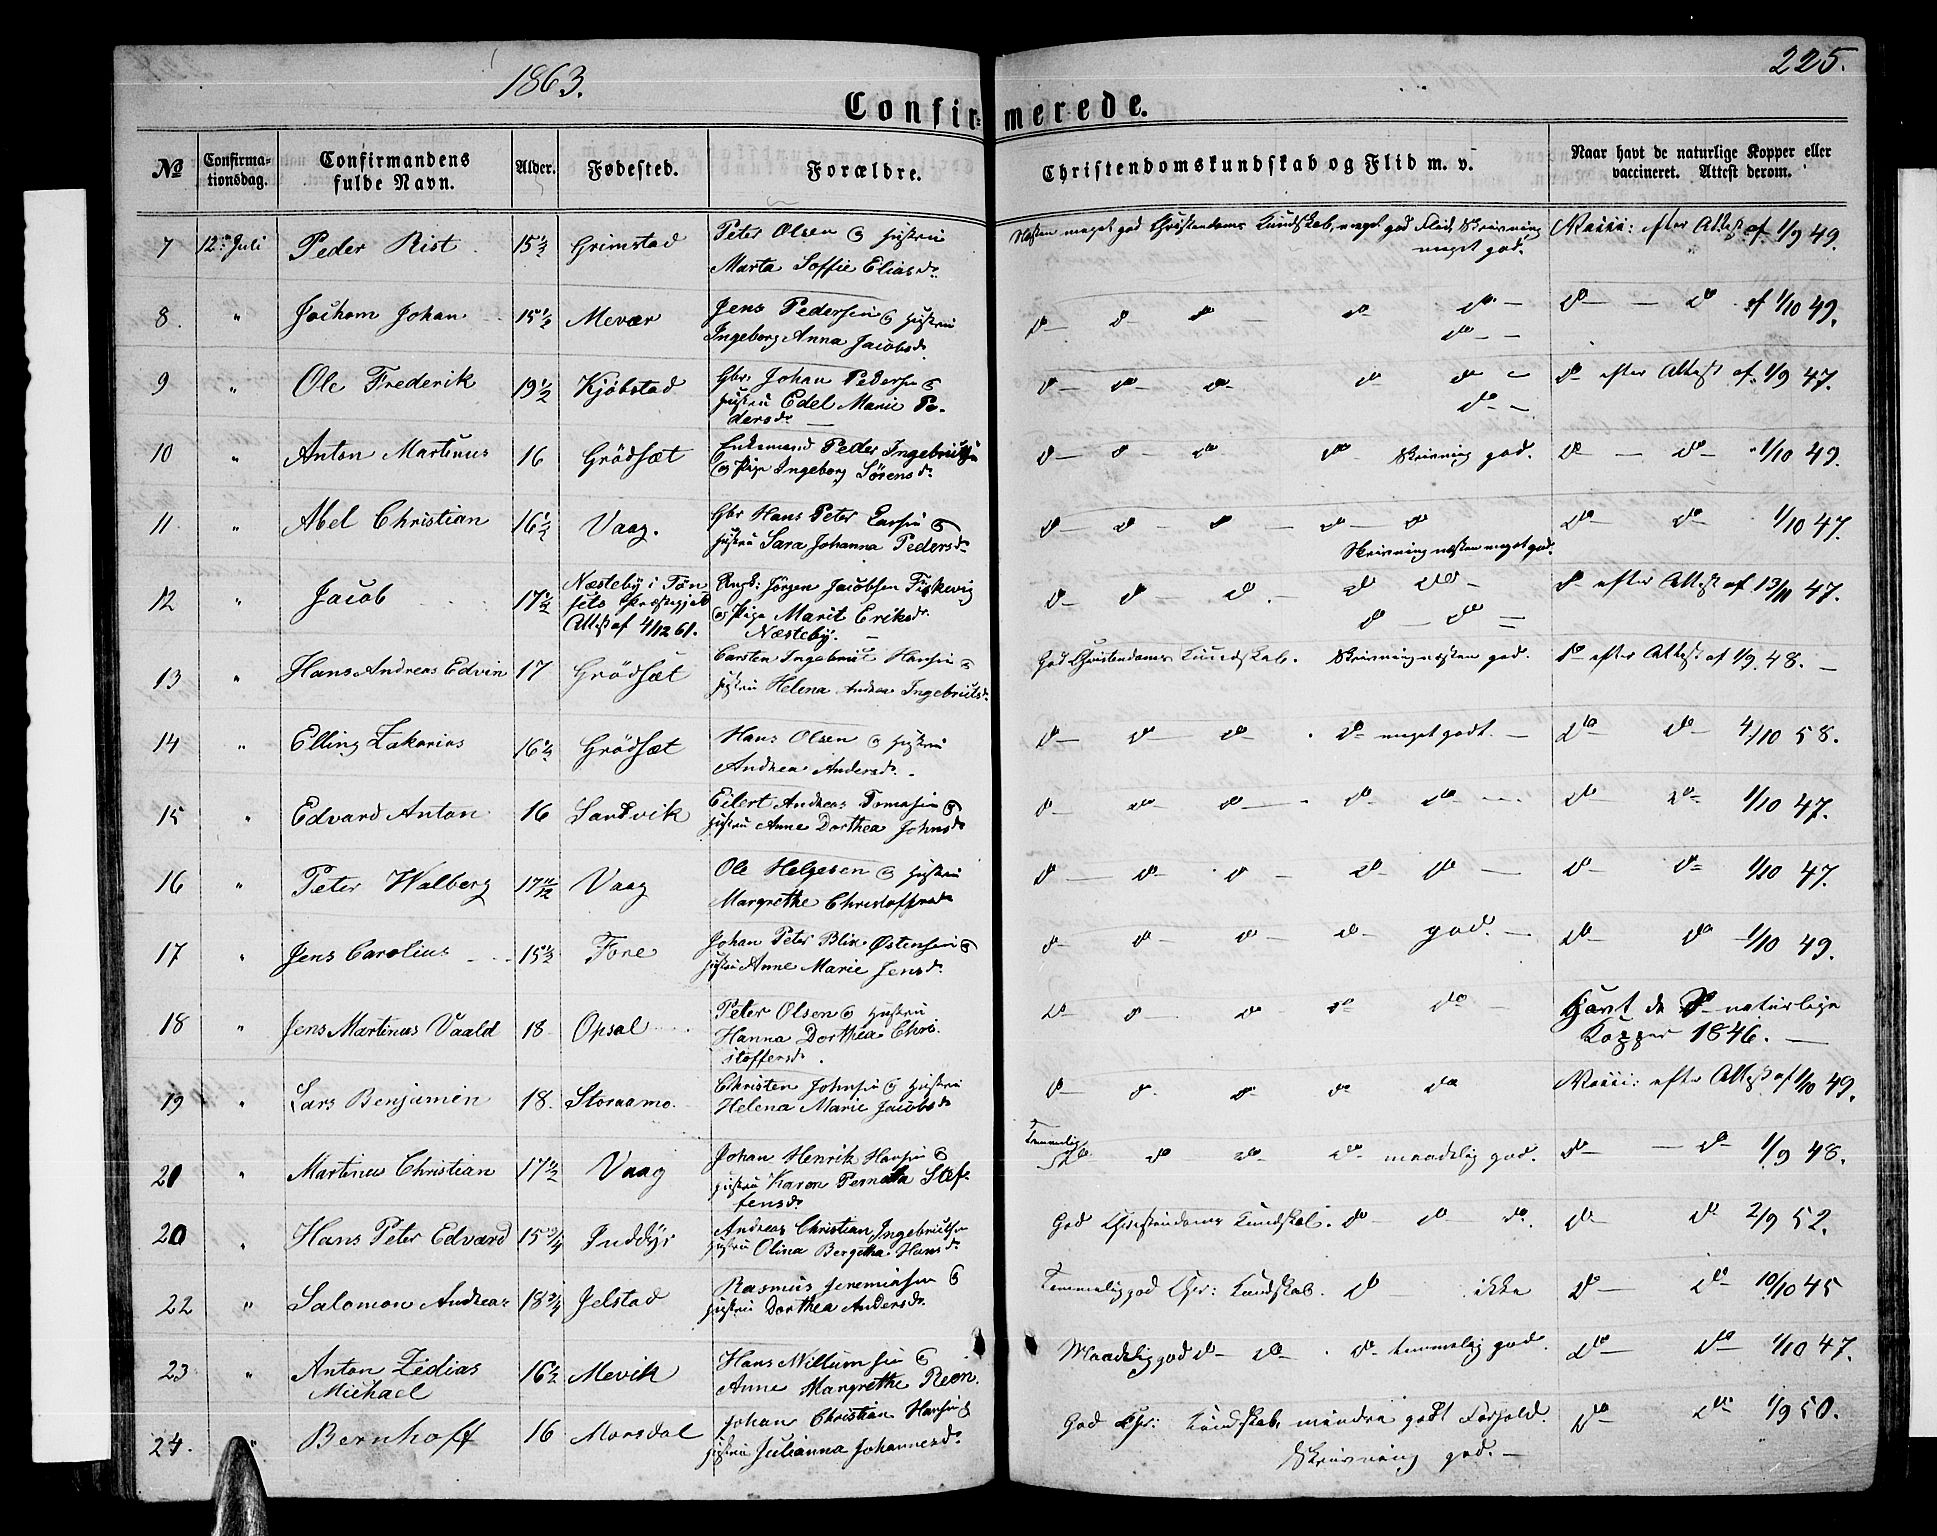 1863.
225.
Confirmerede.
No Confirmationsdag. Confirmandens fulde Navn. Alder. Fødested. Forældre. Christendomskundskab og Flid m. v. Naar havt de naturlige Kopper eller vaccineret. Attest derom.
7 12te Juli Peder Rist 15½ Grimstad Peter Olsen & Hustru Næsten meget god Christendoms Kundskab, meget god Flid, Skrivning Vacci: efter Attest af 1/9 49.
Marta Soffie Eliasdr. meget god.
8. " Jochom Johan 15½ Mevær Jens Pedersen & Hustru do do do do do - do - do af 1/10 49.
Ingeborg Anna Jacobsdr do -
9 " Ole Frederik 19½ Kjøbstad Gbr. Johan Pedersen & do - do - do - do do - do efter Attest af 1/9 47.
Hustru Edel Marie Pe- do -
dersdr.
10 " Anton Martinus 16 Grödsæt Enkemand Peder Ingebrigtsen do - do - do do Skrivning god. do - do - 1/10 49.
& Pige Ingeborg Sörensdr
11. " Abel Christian 16½ Vaag. Gbr Hans Peter Larsen & do - do - do - do - do do - do - 1/10 47.
Hustru Sara Johanna Pedersdr Skrivning næsten meget god.
12 " Jacob 17½ Næsteby i Tøn- Ungk: Jörgen Jacobsen Fiskevig do - do - do. - do do - do efter Attest af 13/11 47.
sets Præstegjeld & Pige Marit Eriksdr. do - do =
Attest af 4/12 61. Næsteby. -
13 " Hans Andreas Edvin 17 Grödsæt Carsten Ingebrigt Hansen & God Christendoms Kundskab. Skrivning næsten god. do efter Attest af 1/9 48. -
Hustru Helena Andrea Ingebrigtsdr.
14 " Elling Zakarias 16½ Grödsæt Hans Olsen & Hustru do - do - do - do meget godt. - do do - 4/10 58.
Andrea Andersdr.
15 " Edvard Anton 16 Sandvik Eilert Andreas Tomasen & do - do - do - do - do - do - do - 1/10 47.
Hustru Anne Dorthea Johnsdr
16 " Peter Walberg 17 11/12 Vaag Ole Helgesen & Hustru do - do - do - do - do - do - do - 1/10 47.
Margrethe Christoffersdr
17 " Jens Carolius 15½ Fore Johan Peter Blix Østensen & do - do - do - do - god. - do - do - 1/10 49.
Hustru Anne Marie Jensdr.
18 " Jens Martinus Vaald 18 Opsal Peter Olsen & Hustru do - do - do - do - do - Havt de naturlige
Hanna Dorthea Chri- Kopper 1846. -
stoffersdr.
19 " Lars Benjamin 18. Storaamo. Christen Johnsen & Hustru do - do. do - do - do Vacci: efter Attest af 1/10 49.
Helena Marie Jacobsdr
20 " Martinus Christian 17½ Vaag Johan Henrik Hansen & Temmelig do do do - do - maadelig god. do - - do - 1/9 48.
Hustru Karen Pernella Stef-
fensdr
20 " Hans Peter Edvard 15¾ Inddyr Andreas Christian Ingebrigtsen God Christendoms Kundskab. do - do do. do - do 2/9 52.
Hustru Olina Bergitha Hansdr
22 " Salomon Andreas 18¾ Jelstad Rasmus Jeremiasen & Temmelig god Chr: Kundskab. do - ikke do - do 10/10 45
Hustru Dorthea Andersdr.
23 " Anton Zidias 16½ Mevik Hans Willumsen & Maadelig god do - do - do - temmelig god. do - do - 1/10 47.
Michael Anne Margrethe
24. " Bernhoff 16 Morsdal Johan Christian Hansen & God Chr: Kundskab, mindre godt Forhold. do - do 1/9 50.
Hustru Julianna Johannesdr. Skrivning god. -